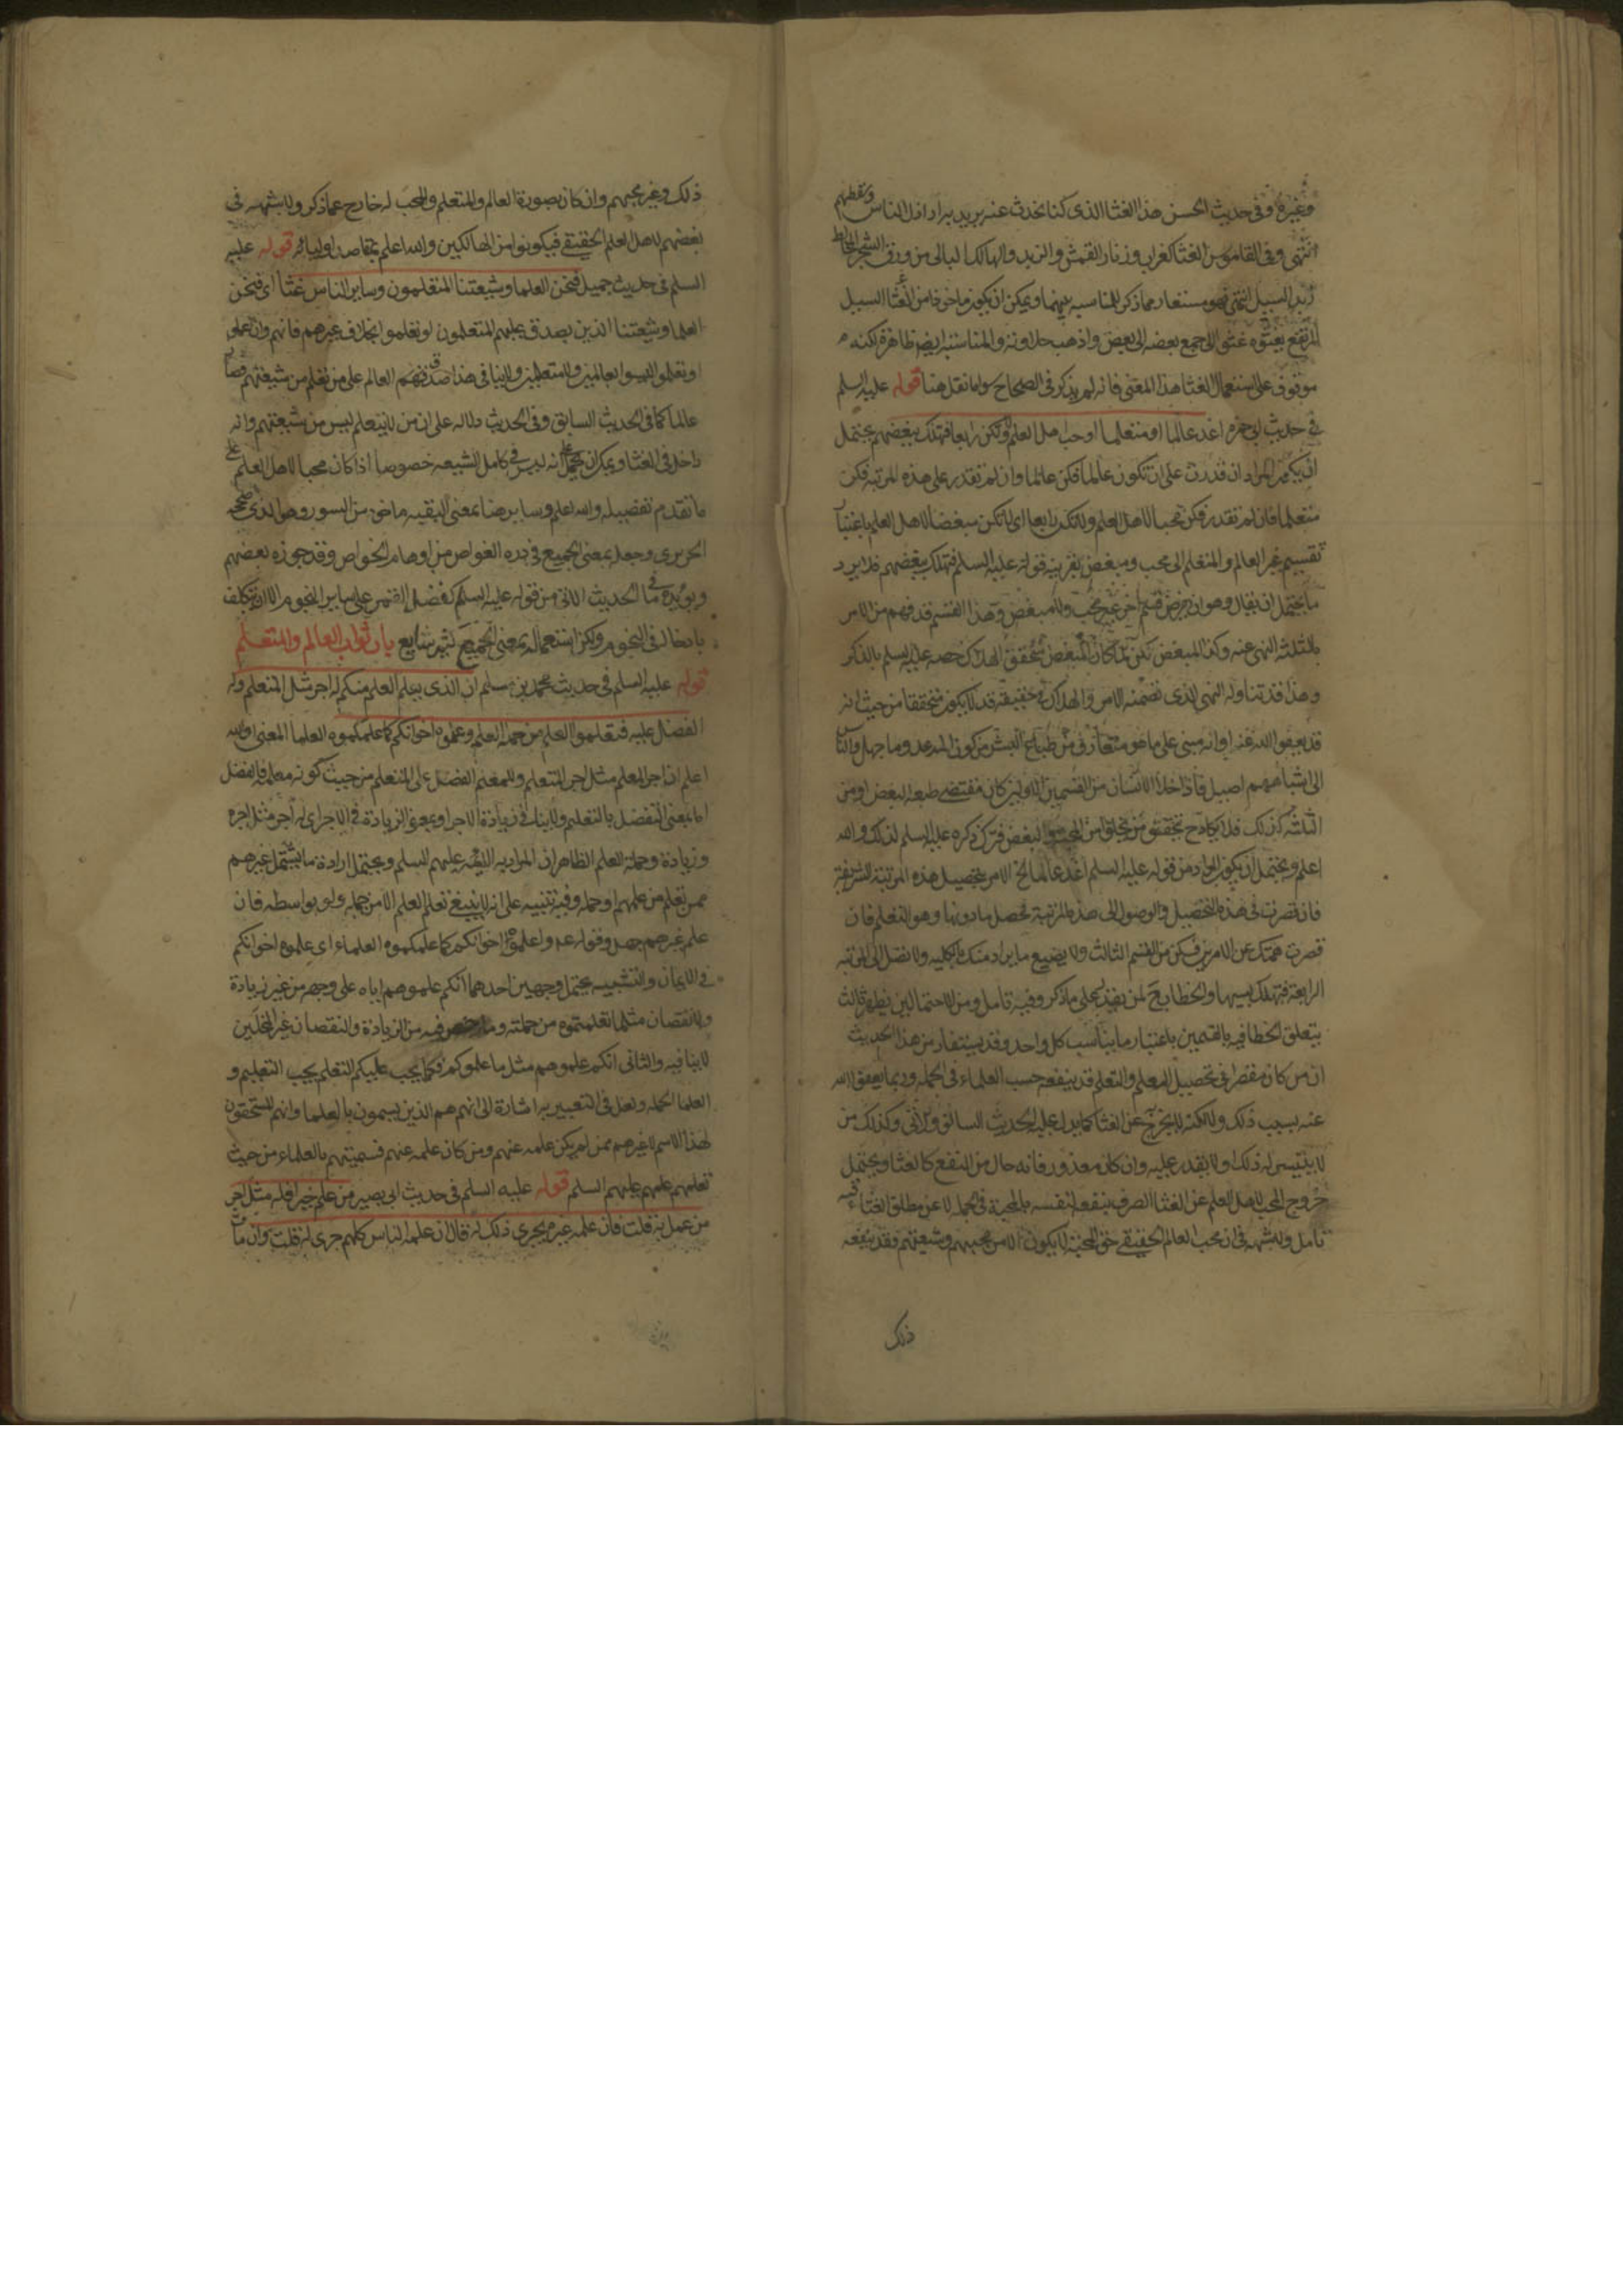 وغيره وفى حديث الحسن هذا الغثا الذى كنا نحدث عنه يريد به اراذل الناس وسقطهم
انتهى وفى القاموس الغثا كغراب وزنار القمش والزبد والهالك البالى من ورق الشجر المخالط
زبد السيل انتهى فهو مستعار مما ذكر للمناسبه بينهما ويمكن ان يكون ماخوذا من غثا السيل
المرتع يغثوه غثوا اذا جمع بعضه الى بعض واذهب حلاوته والمناسبة ايضا ظاهرة لكنه
موقوف على استعمال الغثا هذا المعنى فانه لم يذكر فى الصحاح سوى ما نقل هنا قوله عليه السلم
فى حديث ابى حمزه اغد عالما او متعلما او احب اهل العلم ولا تكن رابعا فتهلك ببغضهم يحتمل
ان يكون المراد ان قدرت على ان تكون عالما فكن عالما وان لم تقدر على هذه المرتبه فكن
متعلما فان لم تقدر فكن محبا لاهل العلم ولا تكن رابعا اى لا تكن مبغضا لاهل العلم باعتبار
تقسيم غير العالم والمتعلم الى محب ومبغض بقرينه قوله عليه السلم فتهلك ببغضهم فلا يرد
ما يحتمل ان يقال وهو ان يفرض قسم اخر غير محب ولا مبغض وهذا القسم قد فهم من الامر
بالثلثه النهى عنه وكذا المبغض لكن لما كان المبغض يتحقق الهلاك خصه عليه السلم بالذكر
وهذا قد تناوله النهى الذى تضمنه الامر والهلاك فى حقيقه قد لا يكون متحققا من حيث انه
قد يعفو الله عنه او انه مبنى على ما هو متعارف من طباع البشر من كون المرء عدو ما جهل والناس
الى اشباههم اميل فاذا خلا الانسان من القسمين الاولين كان مقتضى طبعه البغض او من
الثلثه كذلك فلا يكاد يتحقق من يخلو من المحبه والبغض فترك ذكره عليه السلم لذلك والله
اعلم ويحتمل ان يكون المراد من قوله عليه السلم اغد عالما الخ الامر بتحصيل هذه المرتبة الشريفة
فان قصرت فى هذا التحصيل والوصول الى هذه المرتبة تحصل ما دونها وهو التعلم فان
قصرت همتك عن الامرين فكن من القسم الثالث ولا يضيع ما يراد منك بالكليه ولا تصل الى المرتبه
الرابعة فتهلك بسببها والخطاب ح لمن يقدر على ما ذكر وفيه تامل ومن الاحتمالين يظهر ثالث
يتعلق الخطا فيه بالقسمين باعتبار ما يناسب كل واحد وقد يستفاد من هذا الحديث
ان من كان مقصرا فى تحصيل العلم والتعلم قد ينفعه حب العلماء فى الجمله وربما يعفو الله
عنه بسبب ذلك ولكنه لا يخرج عن الغثا كما يدل عليه الحديث السابق والاتى وكذلك من
لا يتيسر له ذلك او لا يقدر عليه وان كان معذورا فانه خال من النفع كالغثا ويحتمل
خروج المحب لاهل العلم عن الغثا الصرف بنفعه لنفسه بالمحبة فى الجمله لا عن مطلق الغثاء وفيه
تامل ولا شبهه فى ان محب العالم الحقيقى حق المحبة لا يكون الا من محبيهم وشيعتهم وقد ينفعه
ذلك
ذلك وغير محبهم وان كان بصورة العالم والمتعلم والمحب له خارج عما ذكر ولا شبهه فى
بغضهم لاهل العلم الحقيقى فيكونوا من الهالكين والله اعلم بمقاصد اوليائه قوله عليه
السلم فى حديث جميل فنحن العلما وشيعتنا المتعلمون وساير الناس غثا اى فنحن
العلما وشيعتنا الذين يصدق عليهم المتعلمون لو تعلموا بخلاف غيرهم فانهم وان علموا
او تعلموا ليسوا بعالمين ولا متعلمين ولا ينافى هذا صدق العالم على من تعلم من شيعتهم فصار
عالما كما فى الحديث السابق وفى الحديث دلاله على ان من لا يتعلم ليس من شيعتهم وانه
داخل فى الغثا ويمكن ان يحمل على انه ليس فى كامل الشيعه خصوصا اذا كان محبا لاهل العلم على
ما تقدم تفصيله والله اعلم وساير هنا بمعنى البقيه ماخوذ من السور وهو الذى صححه
الحريرى وجعله بمعنى الجميع فى دره الغواص من اوهام الخواص وقد جوزه بعضهم
ويؤيده ما فى الحديث الاتى من قوله عليه السلم كفضل القمر على ساير النجوم الا ان يتكلف
بادخاله فى النجوم ولكن استعماله بمعنى الجميع كثير شايع باب ثواب العالم والمتعلم
قوله عليه السلم فى حديث محمد بن مسلم ان الذى يعلم العلم منكم له اجر مثل المتعلم وله
الفضل عليه فتعلموا العلم من حملة العلم وعلموه اخوانكم كما علمكموه العلما المعنى والله
اعلم ان اجر المعلم مثل اجر المتعلم وللمعلم الفضل على المتعلم من حيث كونه معلما فالفضل
اما بمعنى التفضل بالتعليم ولا ينافى زيادة الاجر او بمعنى الزيادة فى الاجر اى له اجر مثل اجره
وزيادة وحملة العلم الظاهر ان المراد به الائمه عليهم السلم ويحتمل ارادة ما يشمل غيرهم
ممن تعلم من علمهم او حمله وفيه تنبيه على انه لا ينبغى تعلم العلم الا من حمله ولو بواسطه فان
علم غيرهم جهل وقوله ع وعلموه اخوانكم كما علمكموه العلماء اى علموه اخوانكم
فى الايمان والتشبيه يحتمل وجهين احدهما انكم علموهم اياه على وجهه من غير زيادة
ولا نقصان مثلما تعلمتموه من حملته وما رخص فيه من الزيادة والنقصان غير المخلين
لا ينافيه والثانى انكم علموهم مثل ما علموكم فكما يجب عليكم التعلم يجب التعليم و
العلما الحمله ولعل فى التعبير به اشارة الى انهم هم الذين يسمون بالعلما وانهم المستحقون
لهذا الاسم لا غيرهم ممن لم يكن علمه عنهم ومن كان علمه عنهم فتسميتهم بالعلماء من حيث
تعلمهم علمهم عليهم السلم قوله عليه السلم فى حديث ابى بصير من علم خيرا فله مثل اجر
من عمل به قلت فان علمه غيره يجرى ذلك له قال ان علمه الناس كلهم جرى له قلت وان مات